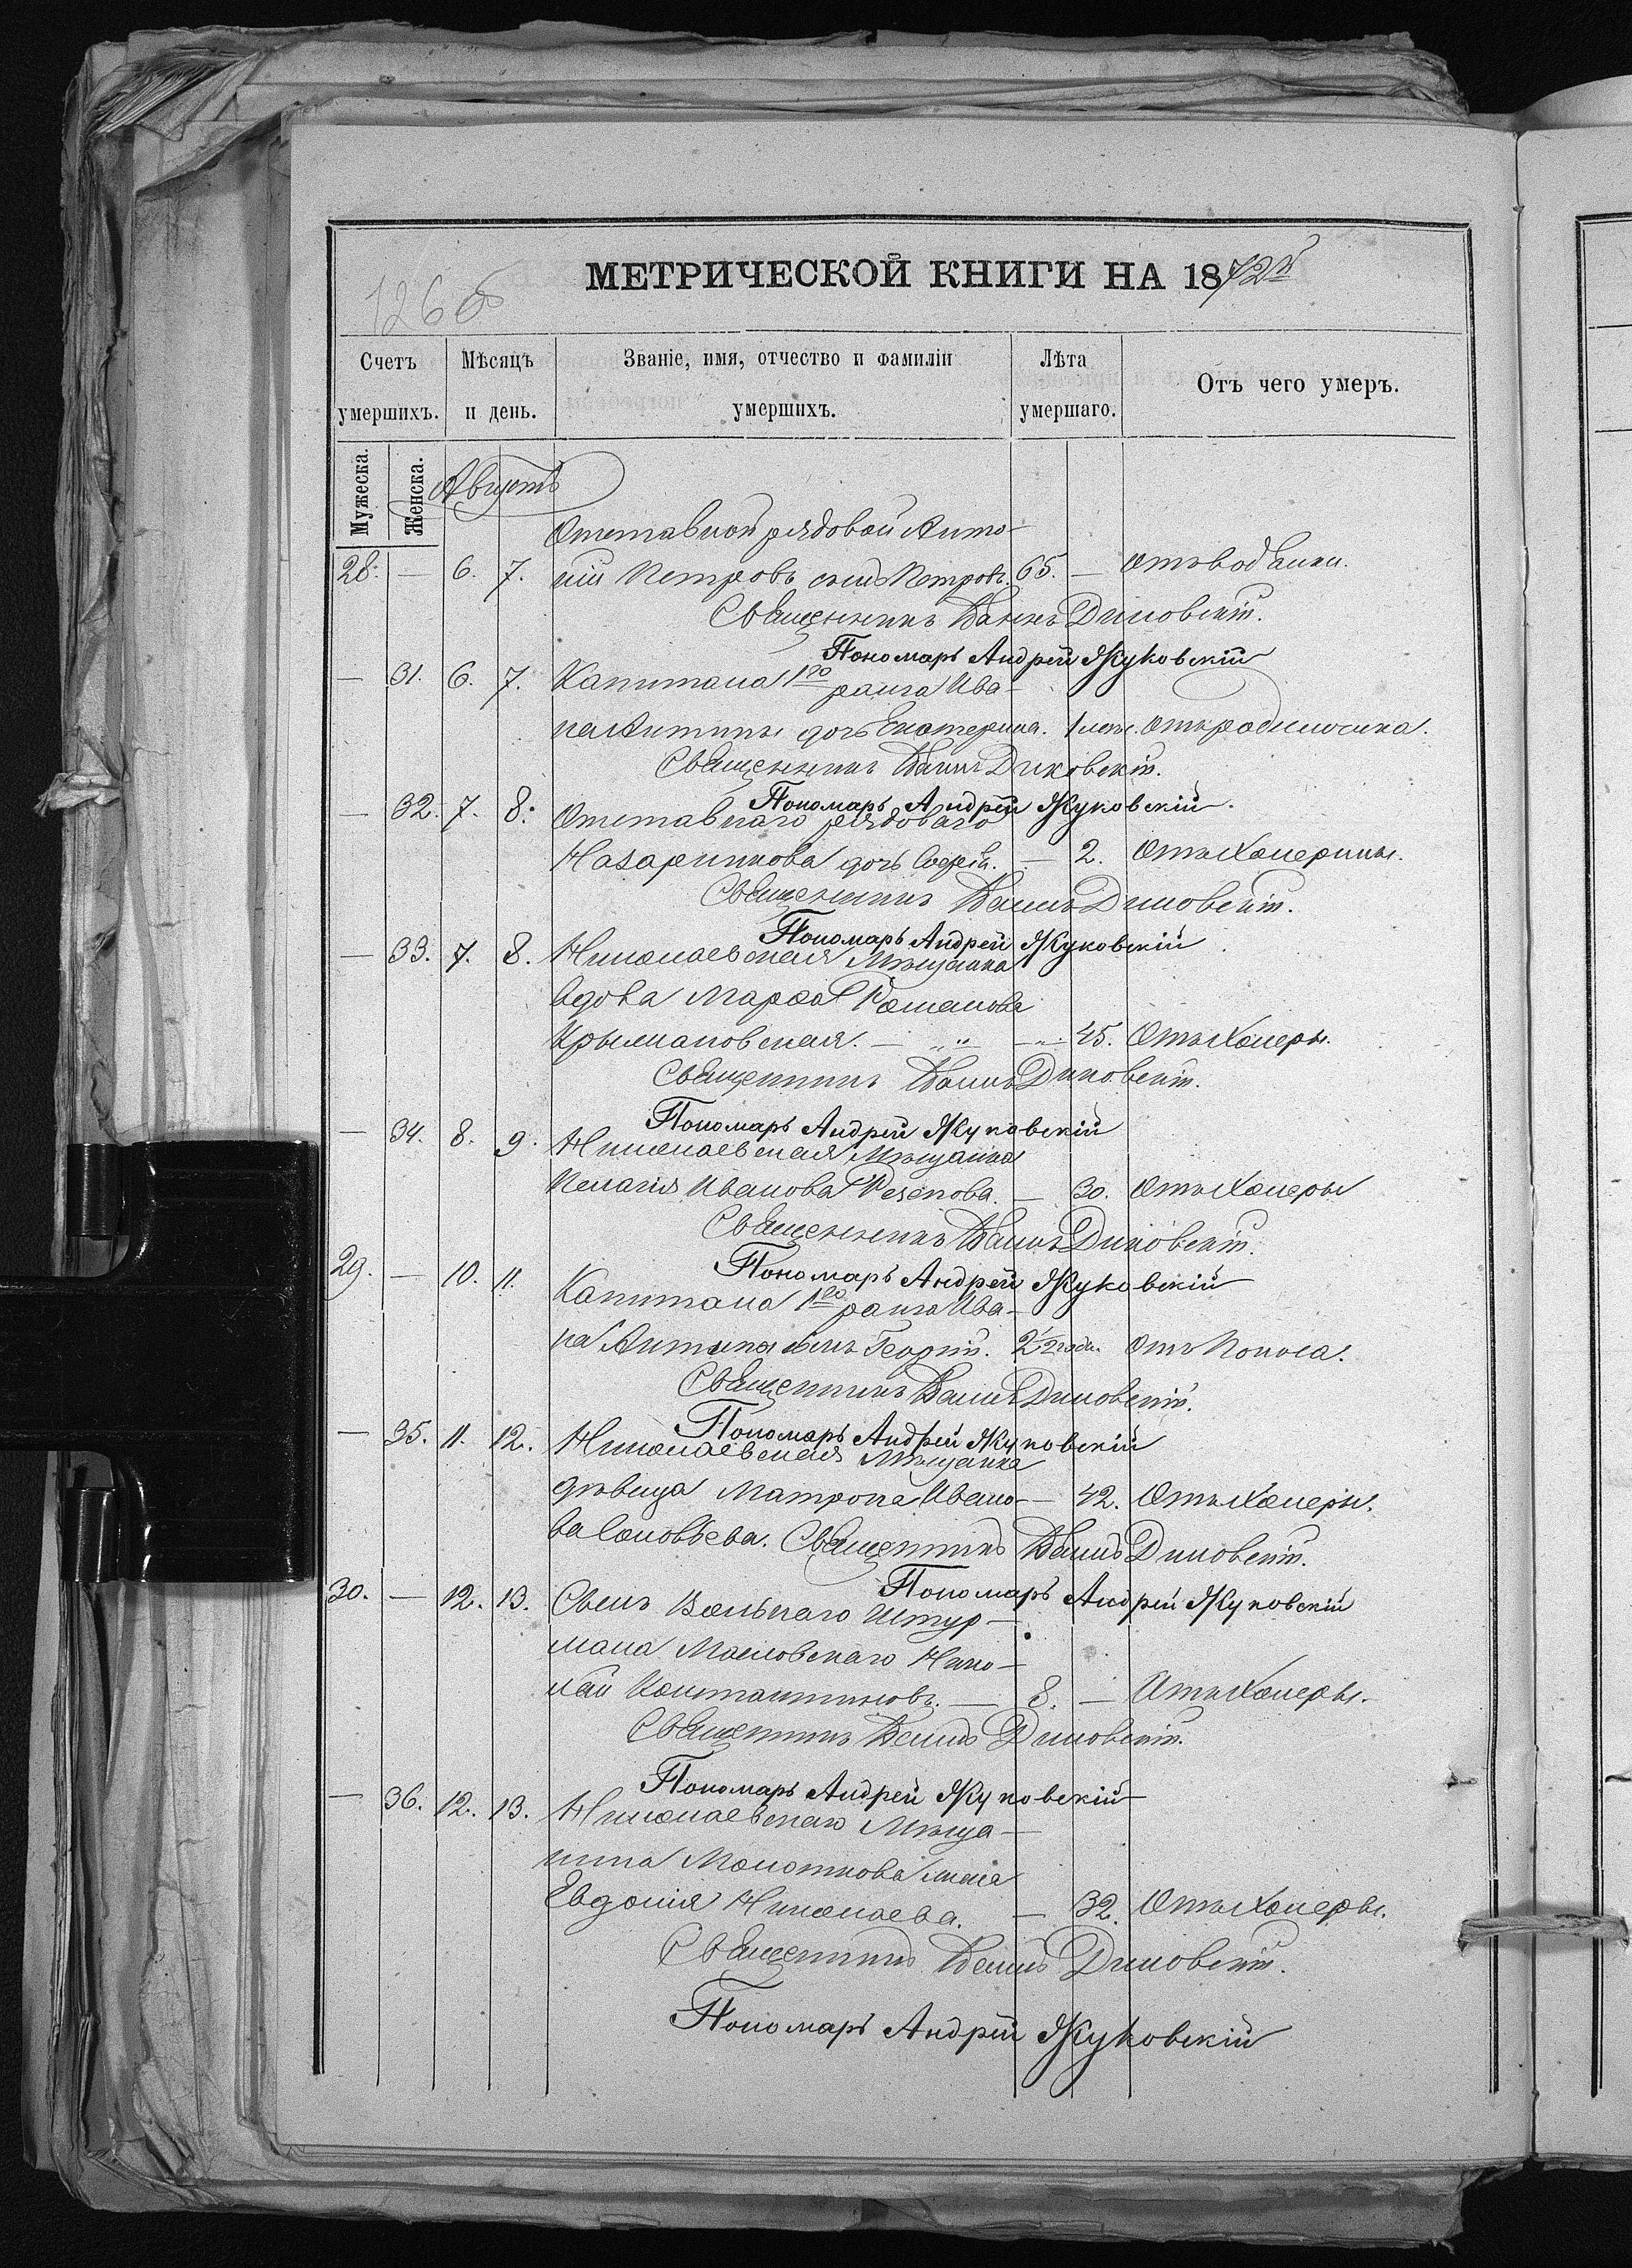 МЕТРИЧЕСКОЙ КНИГИ НА 1872й
126об
Счетъ умершихъ. Мѣсяцъ и день. Званіе, имя, отчество и фамиліи умершихъ. Лѣта умершаго. Отъ чего умеръ.
Мужеска. Женска.
Августъ
Отставной рядовой Анто-
28. — 6. 7. ній Петровъ сынъ Петровъ. 65. — Отъ водянки.
Священникъ Диковскій.
Пономарь Андрей Жуковскій
— 31. 6. 7. Капитана 1го ранга Ива-
на Антипы дочь Екатерина. 1 мѣс. Отъ родимчика.
Священникъ Диковскій.
Пономарь Андрей Жуковскій.
— 32. 7. 8. Отставнаго рядоваго
Назарчикова дочь Софія. — 2. Отъ Холерины.
Священникъ Диковскій.
Пономарь Андрей Жуковскій
— 33. 7. 8. Николаевская Мѣщанка
вдова Марѳа Романова
Крымановская. — 45. Отъ Холеры.
Священникъ Диковскій.
Пономарь Андрей Жуковскій
— 34. 8. 9. Николаевская Мѣщанка
Пелагія Иванова Резепова. — 30. Отъ Холеры
Священникъ Диковскій.
Пономарь Андрей Жуковскій
29. — 10. 11. Капитана 1го ранга Ива-
на Антипы сынъ Георгій. 2 1/2 года. Отъ Поноса.
Священникъ Диковскій.
Пономарь Андрей Жуковскій
— 35. 11. 12. Николаевская Мѣщанка
дѣвица Матрона Ивано- — 42. Отъ Холеры.
ва Соловьева. Священникъ Диковскій.
Пономарь Андрей Жуковскій
30. — 12. 13. Сынъ Вольнаго Штур-
мана Масловскаго Нико-
лай Константиновъ. — 8. — Отъ Холеры.
Священникъ Диковскій.
Пономарь Андрей Жуковскій
— 36. 12. 13. Николаевскаго Мѣща-
нина Молоткова жена
Евдокія Николаева. — 32. Отъ Холеры.
Священникъ Диковскій.
Пономарь Андрей Жуковскій